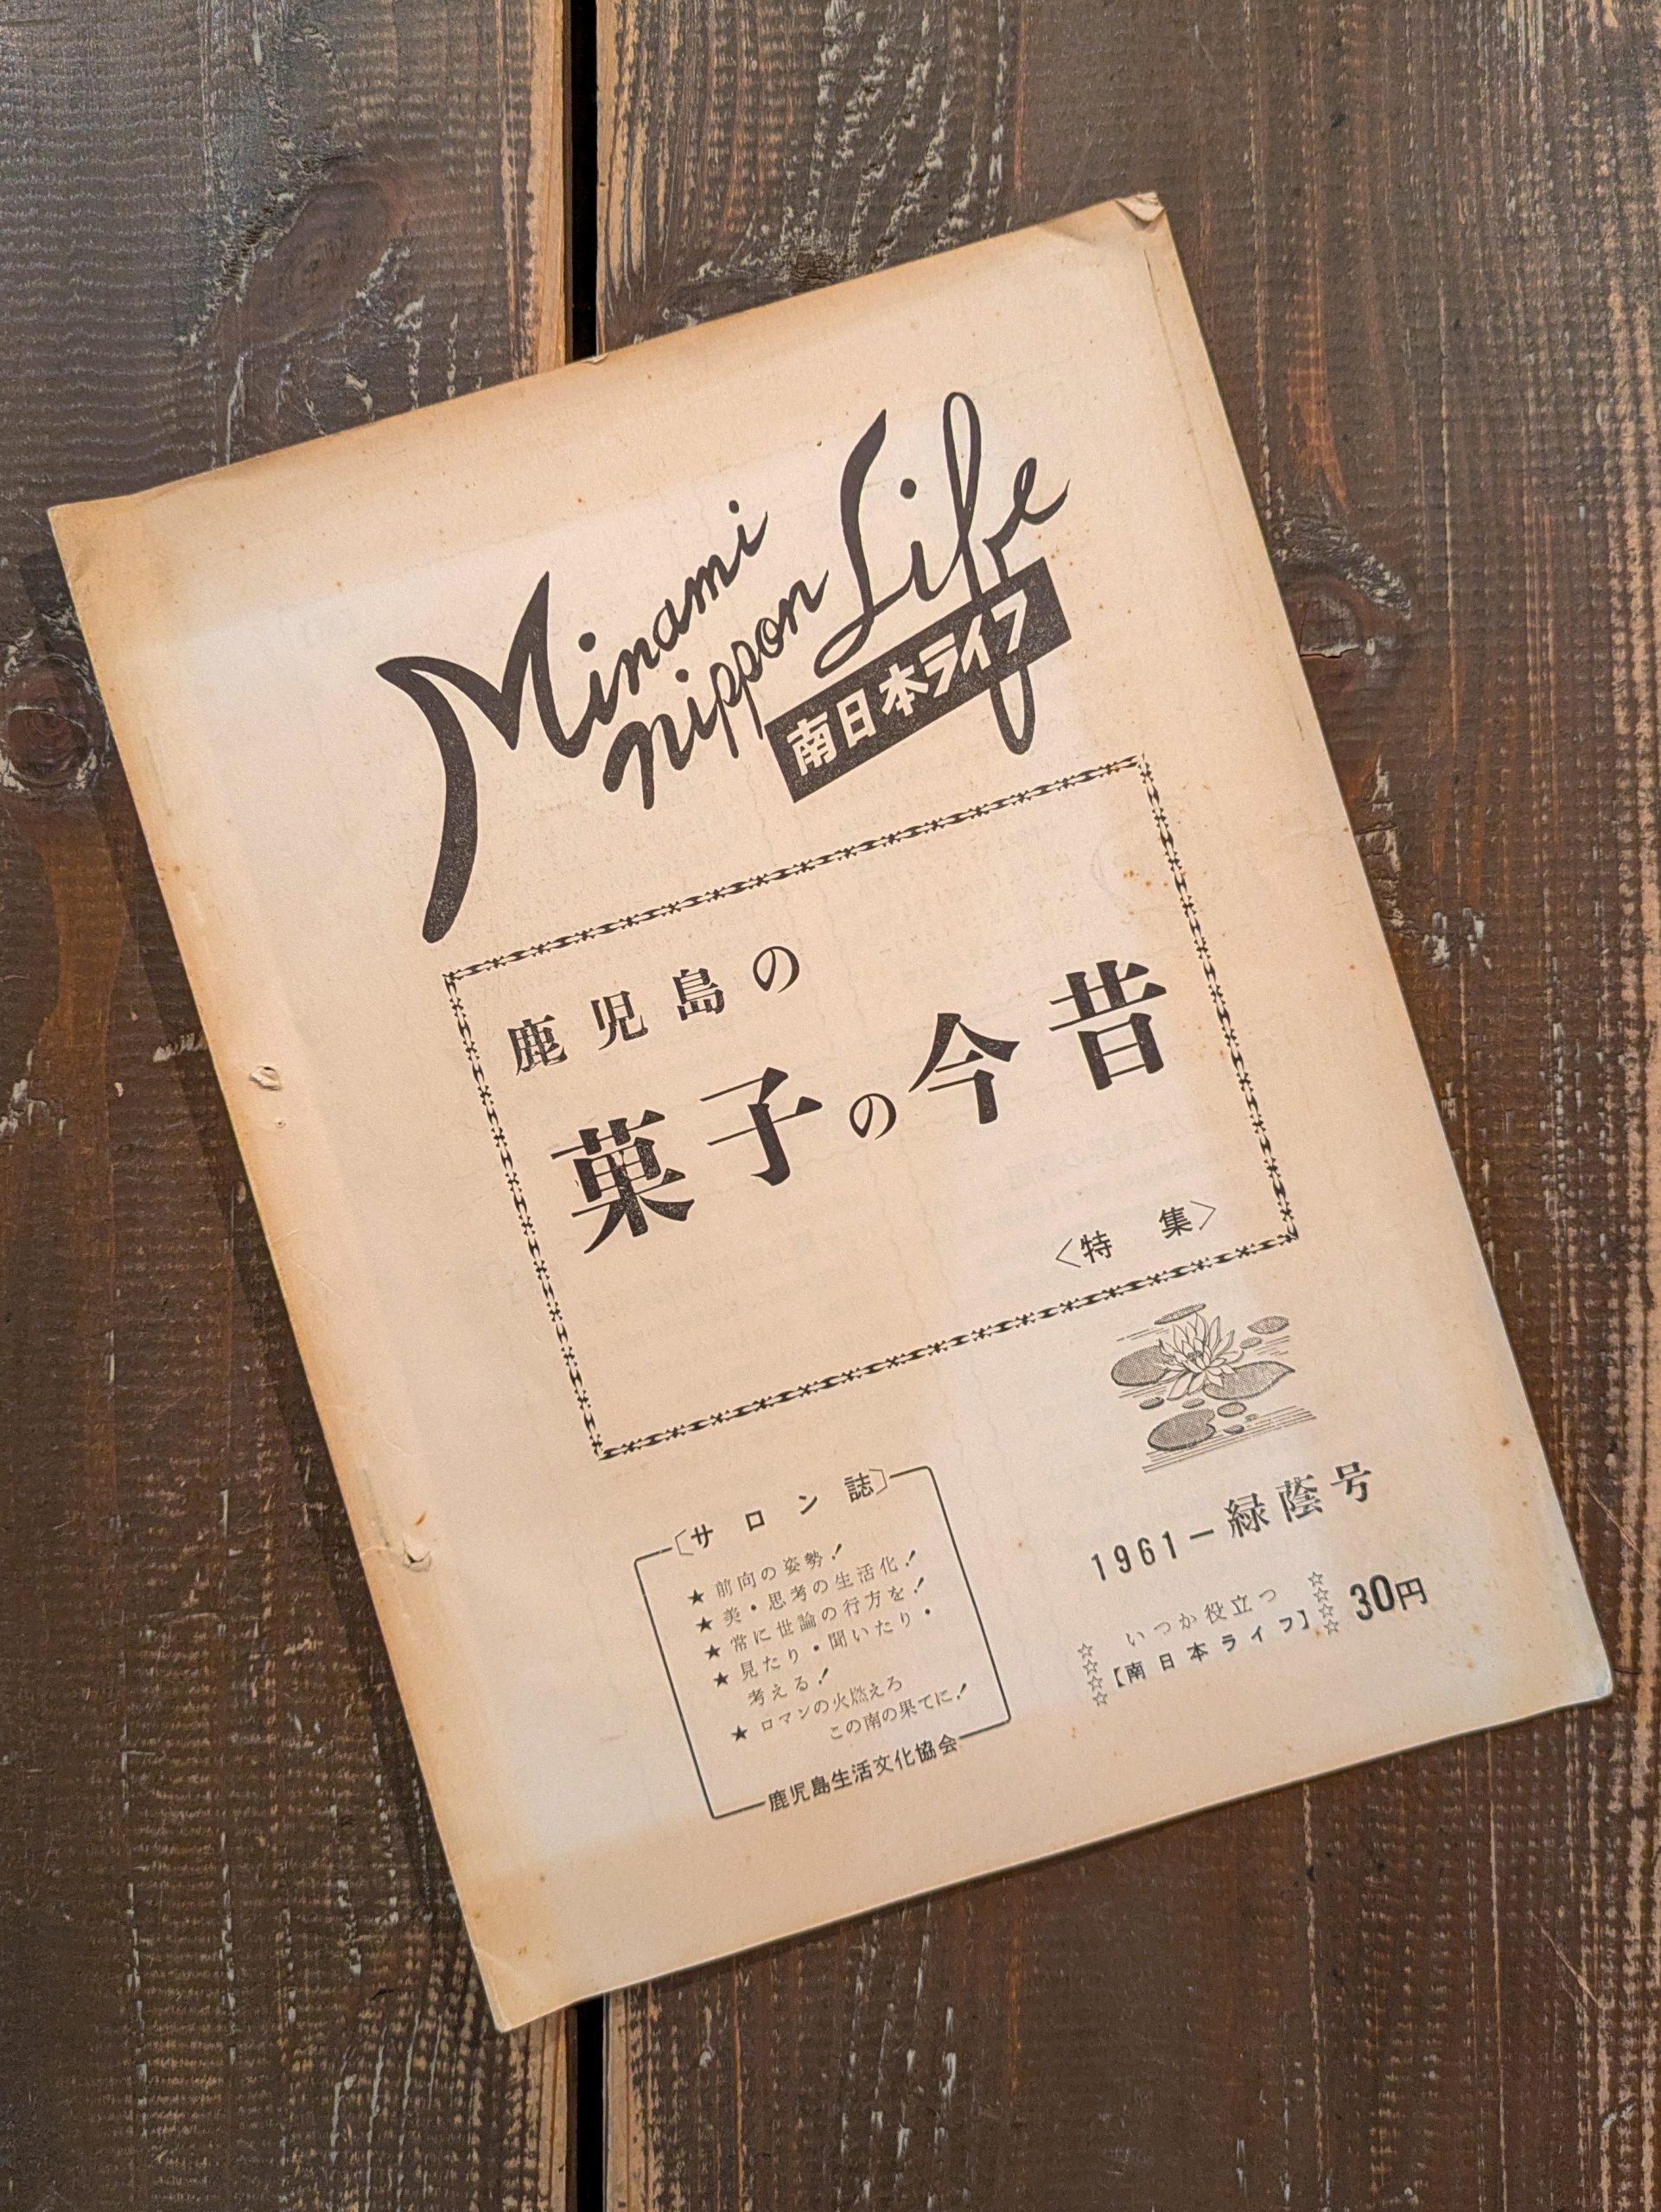 Minami
nippon Life
南日本ライフ
鹿児島の
菓子の今昔
〈特 集〉
〔サロン誌〕
★前向の姿勢!
★美・思考の生活化!
★常に世論の行方を!
★見たり・聞いたり・
考える!
★ロマンの火燃えろ
この南の果てに!
鹿児島生活文化協会
1961−緑蔭号
いつか役立つ
【南日本ライフ】
☆☆☆☆
☆☆☆☆
30円